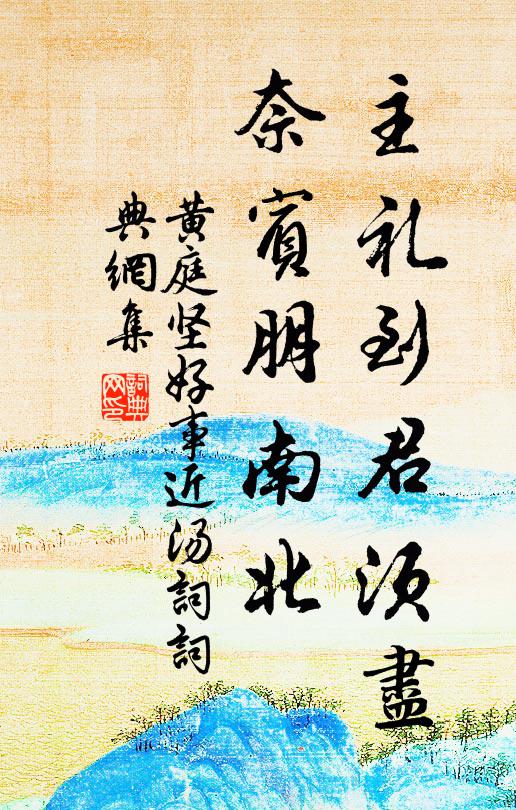 主礼到君须盡
奈賓朋南北
黄庭坚好事近汤詞詞
典網集
詞典
网印